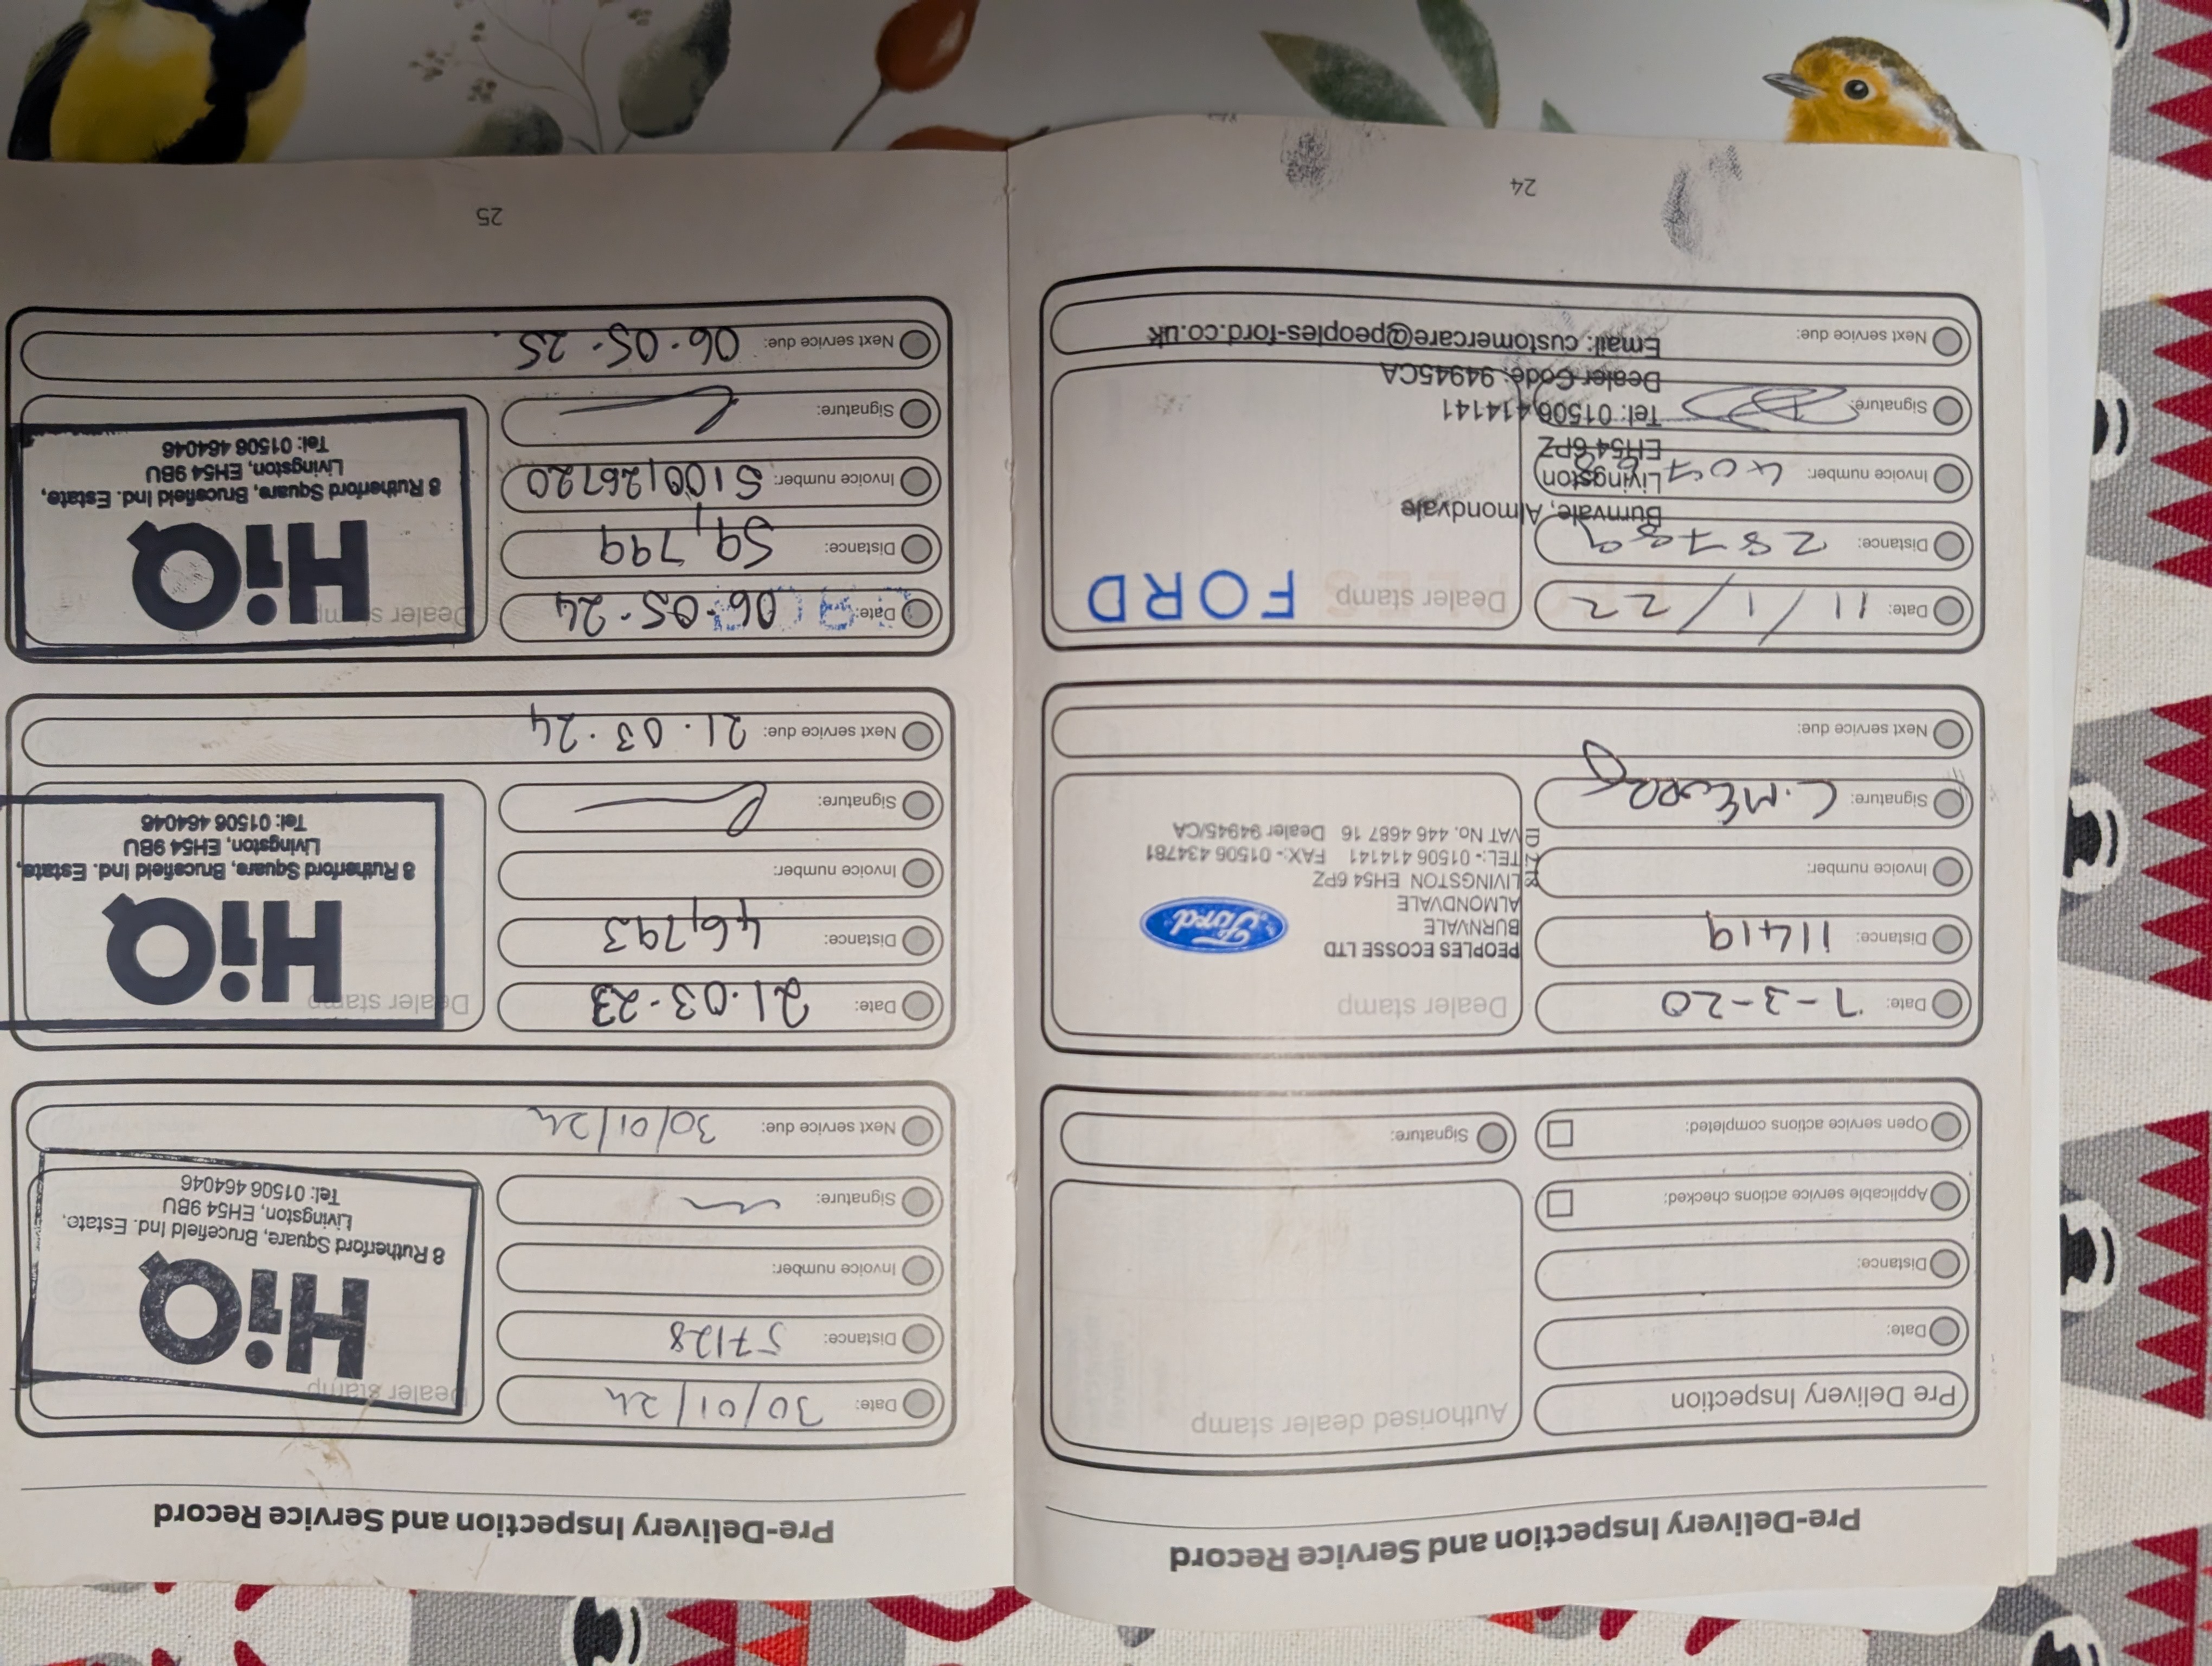 Pre-Delivery Inspection and Service Record
Pre Delivery Inspection
Authorised dealer stamp
Date:
Distance:
Applicable service actions checked:
Open service actions completed:
Signature:
Date: 7-3-20
Distance: 11419
Invoice number:
Signature:
Next service due:
Dealer stamp
PEOPLES ECOSSE LTD
BURNVALE
ALMONDVALE
LIVINGSTON EH54 6PZ
TEL:- 01506 414141 FAX:- 01506 434781
VAT No. 446 4687 16 Dealer 94945/CA
Ford
Date: 11/1/22
Distance: 28789
Invoice number:
Signature:
Next service due:
Dealer stamp
FORD
Burnvale, Almondvale
Livingston
EH54 6PZ
Tel: 01506 414141
Dealer Code: 94945CA
Email: customercare@peoples-ford.co.uk
24
Pre-Delivery Inspection and Service Record
Date: 30/01/24
Distance: 57128
Invoice number:
Signature:
Next service due: 30/01/24
Dealer stamp
HiQ
8 Rutherford Square, Brucefield Ind. Estate,
Livingston, EH54 9BU
Tel: 01506 464046
Date: 21.03.23
Distance: 46,793
Invoice number:
Signature:
Next service due: 21.03.24
Dealer stamp
HiQ
8 Rutherford Square, Brucefield Ind. Estate,
Livingston, EH54 9BU
Tel: 01506 464046
Date: 06.05.24
Distance: 59,799
Invoice number: S100126720
Signature:
Next service due: 06.05.25.
Dealer stamp
HiQ
8 Rutherford Square, Brucefield Ind. Estate,
Livingston, EH54 9BU
Tel: 01506 464046
25